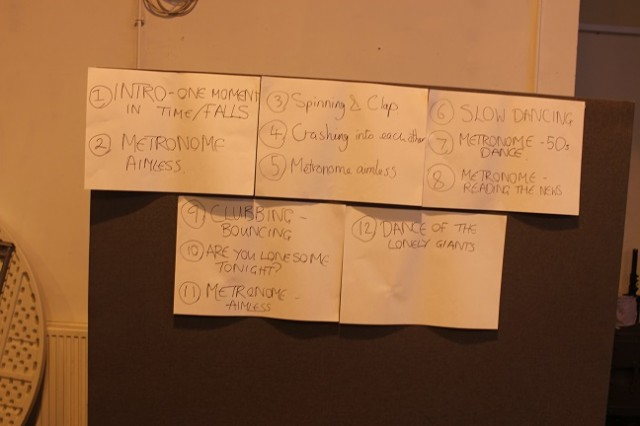 ① INTRO-ONE MOMENT
IN TIME/FALLS
② METRONOME
AIMLESS.
③ Spinning & Clap
④ Crashing into each other
⑤ Metronome aimless
⑥ SLOW DANCING
⑦ METRONOME - 50s
DANCE
⑧ METRONOME -
READING THE NEWS
⑨ CLUBBING -
BOUNCING
⑩ ARE YOU LONESOME
TONIGHT?
⑪ METRONOME -
-AIMLESS
⑫ DANCE OF THE
LONELY GIANTS